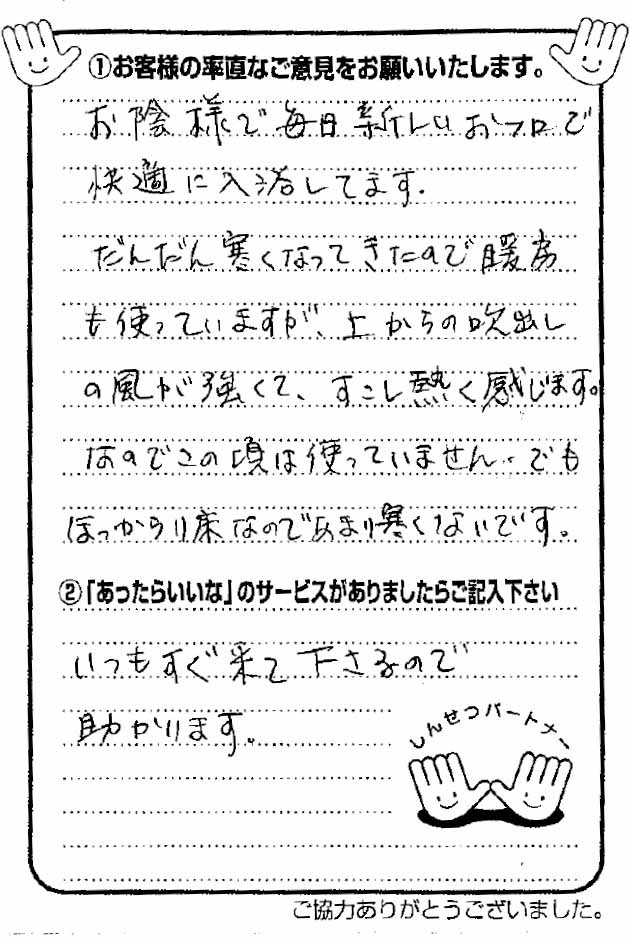 ①お客様の率直なご意見をお願いいたします。
お陰様で毎日新しいおフロで
快適に入浴してます.
だんだん寒くなってきたので暖房
も使っていますが、上からの吹出し
の風が強くて、すこし熱く感じます。
なのでこの頃は使っていません。でも
ほっからり床なのであまり寒くないです。
②「あったらいいな」のサービスがありましたらご記入下さい
いつもすぐ来て下さるので
助かります。
しんせつパートナー
ご協力ありがとうございました。